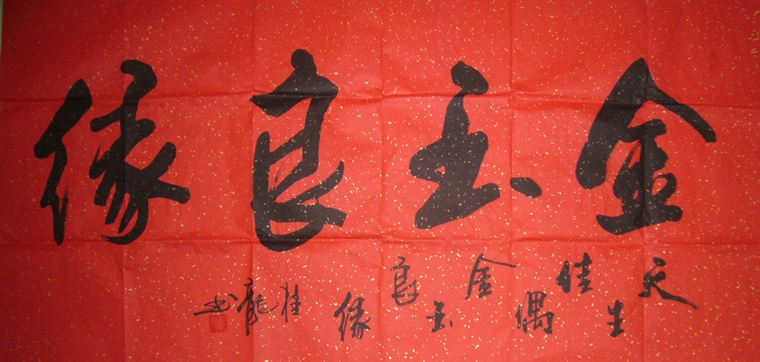 金玉良缘
天生佳偶金玉良缘 桂龍书